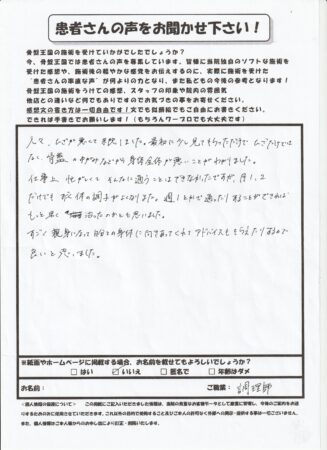 患者さんの声をお聞かせ下さい！
骨盤王国の施術を受けていかがでしたでしょうか？
今、骨盤王国では患者さんの声を募集しています。皆様に当院独自のソフトな施術を
受けた感想や、施術後の軽やかな感覚をお伝えするのに、実際に施術を受けた
“患者さんの率直な声”が何よりの力となり、また私どもの今後の参考となります！
骨盤王国の施術をうけての感想、スタッフの印象や院内の雰囲気
他店との違いなど何でもありですのでお気づきの事をお寄せください。
感想文の書き方は一切自由です！大でも似顔絵でもご自由にお書きください。
できれば手書きでお願いします！（もちろんワープロでも大丈夫です）
元々、ひざが悪くて来院しました。最初に少し見てもらっただけで ひざだけでは
なく、骨盤のゆがみなどから身体全体が悪いことがわかりました。
仕事上、忙がしくて そんなに通うことはできませんでしたが、月1、2
だけでも 体の調子がよくなりました。週1とかで通ったりすることができれば
もっと早く 治ったのかとも思いました。
すごく親身になって自分の身体に向きあってくれてアドバイスももらえたりするので
良いと思いました。
※紙面やホームページに掲載する場合、お名前を載せてもよろしいでしょうか？
□はい ☑いいえ □匿名で □年齢はダメ
お名前： ご職業： 調理師
＜個人情報の保護について＞